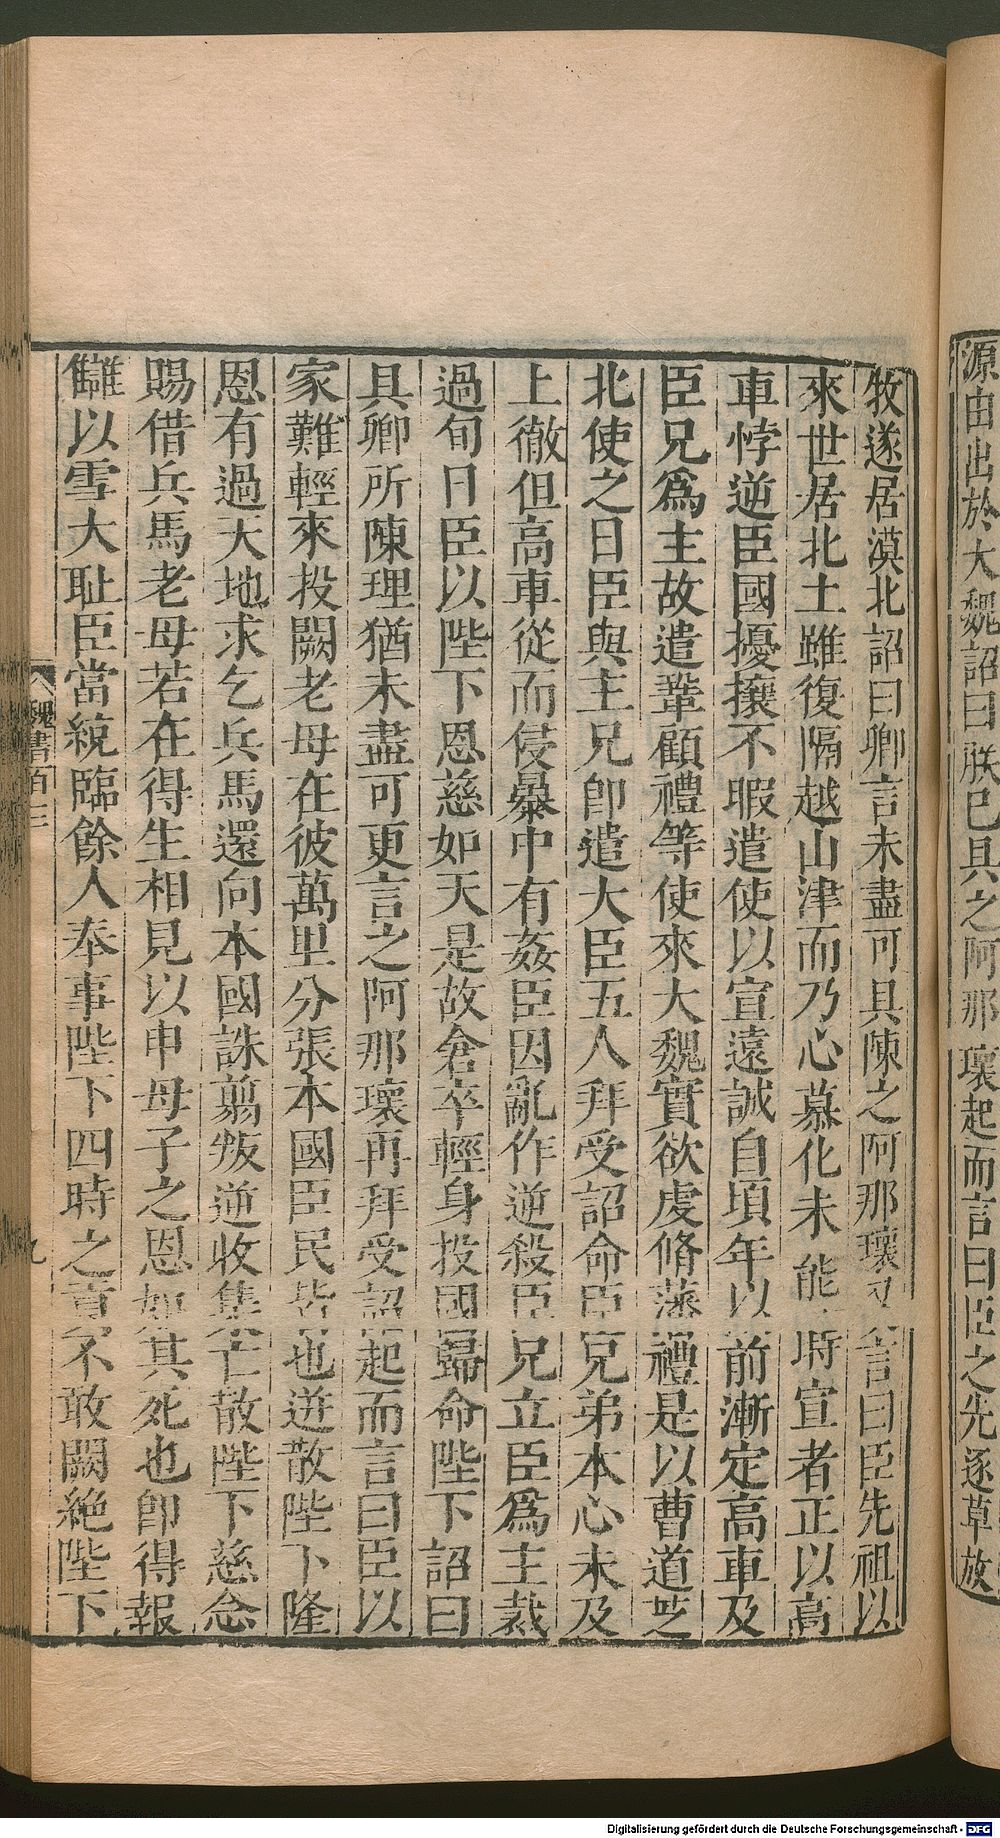 源由出於大魏詔曰朕已具之阿那瓌起而言曰臣之先逐草放
牧遂居漠北詔曰卿言未盡可具陳之阿那瓌又言曰臣先祖以
來世居北土雖復隔越山津而乃心慕化未能時宣者正以高
車悖逆臣國擾攘不暇遣使以宣遠誠自頃年以前漸定高車及
臣兄爲主故遣鞏顧禮等使來大魏實欲虔脩藩禮是以曹道芝
北使之日臣與主兄卽遣大臣五人拜受詔命臣兄弟本心未及
上徹但高車從而侵暴中有姦臣因亂作逆殺臣兄立臣爲主裁
過旬日臣以陛下恩慈如天是故倉卒輕身投國歸命陛下詔曰
具卿所陳理猶未盡可更言之阿那瓌再拜受詔起而言曰臣以
家難輕來投闕老母在彼萬里分張本國臣民皆也迸散陛下隆
恩有過天地求乞兵馬還向本國誅翦叛逆收集亡散陛下慈念
賜借兵馬老母若在得生相見以申母子之恩如其死也卽得報
讎以雪大恥臣當統臨餘人奉事陛下四時之貢不敢闕絕陛下
魏書百三
九
Digitalisierung gefördert durch die Deutsche Forschungsgemeinschaft - DFG